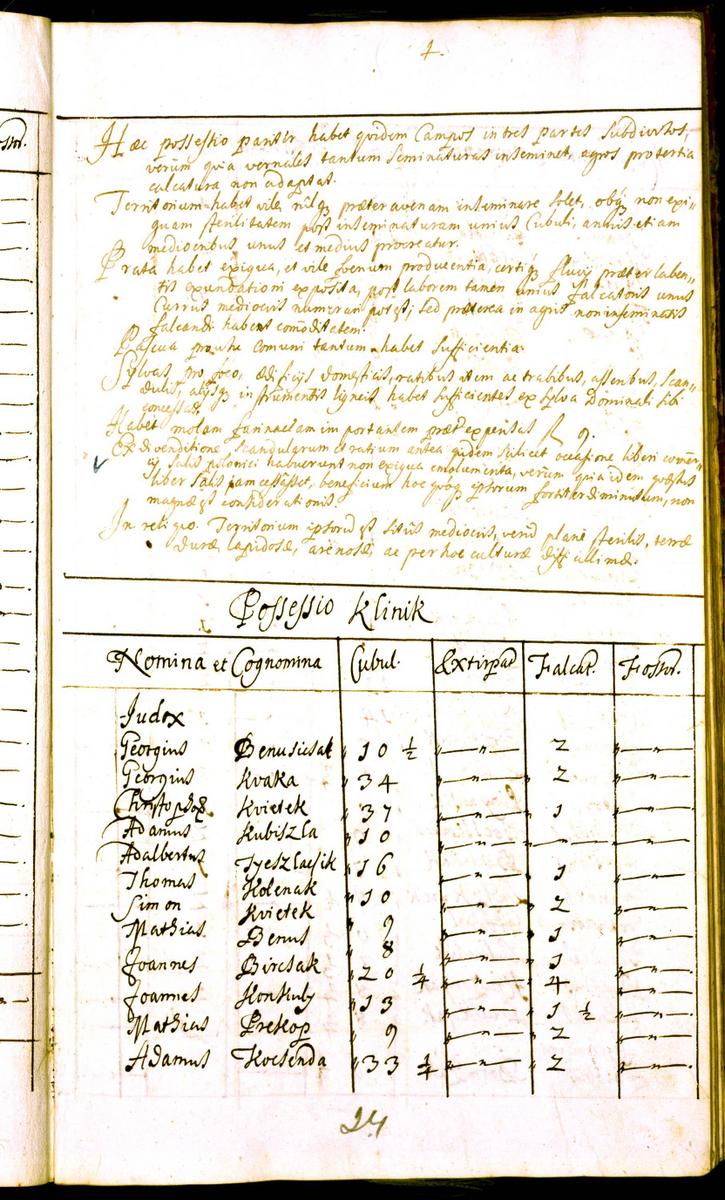 4.
Hæc possessio pariter habet quidem Campos in tres partes subdivisos,
verum quia vernales tantum seminaturas inseminet, agros pro tertia
calcatura non adaptat.
Territorium habet vile, nilq præter avenam inseminare solet, obq non exi-
quam sterilitatem post inseminaturam unius Cubuli, annis etiam
mediocribus unus et medius procreatur.
Prata habet exiqua, et vile foenum producentia, certiq fluvij præterlaben-
tis exundationi exposita, post laborem tamen unius falcatoris unus
Currus mediocris numerari potest; sed præterea in agris non inseminatis
falcandi habent comoditatem.
Pascua pro vhe comuni tantum habet sufficientia.
Sylvas pro foco, ædificijs domesticis, ratibus item ac trabibus, asseribus, scan-
dulis, alijsq instrumentis ligneis habet sufficientes ex sylva Dominali sibi
concessas.
Habet molam farinaclam importantem præter expensas f 9.
Ex divenditione scandularum et ratium antea quidem scilicet occasione liberi comer-
cij Salis polonici habuerunt non exiqua emolumenta, verum quia idem quæstus
liber Salis jam cessasset, beneficium hoc quoq ipsorum fortiter diminutum, non
magnæ est considerationis.
In reliquo. Territorium ipsorum est sitūs mediocris, verum plane sterilis, terræ
duræ, lapidosæ, arenosæ, ac per hoc culturæ difficillimæ.
Possessio Klinik
Nomina et Cognomina Cubul. Extirpat Falcat. Fossor.
Judex
Georgius Benusicsak " 10 ½ "—"— 2 "—"—
Georgius Kvaka " 34 "—"— 2 "—"—
Christophorus Kvietek " 37 "—"— 1 "—"—
Adamus Kubiszla " 10 "—"— —"— "—"—
Adalbertus Tyeszlacsik " 16 "—"— 1 "—"—
Thomas Kolenak " 10 "—"— 2 "—"—
Simon Kvietek " 9 "—"— 1 "—"—
Mathias Benus " 8 "—"— 1 "—"—
Joannes Bircsak " 20 ¼ "—"— 4 "—"—
Joannes Konkuly " 13 "—"— 1 ½ "—"—
Mathias Prekop " 9 "—"— 2 "—"—
Adamus Kocsenda " 33 ¼ "—"— 2 "—"—
24